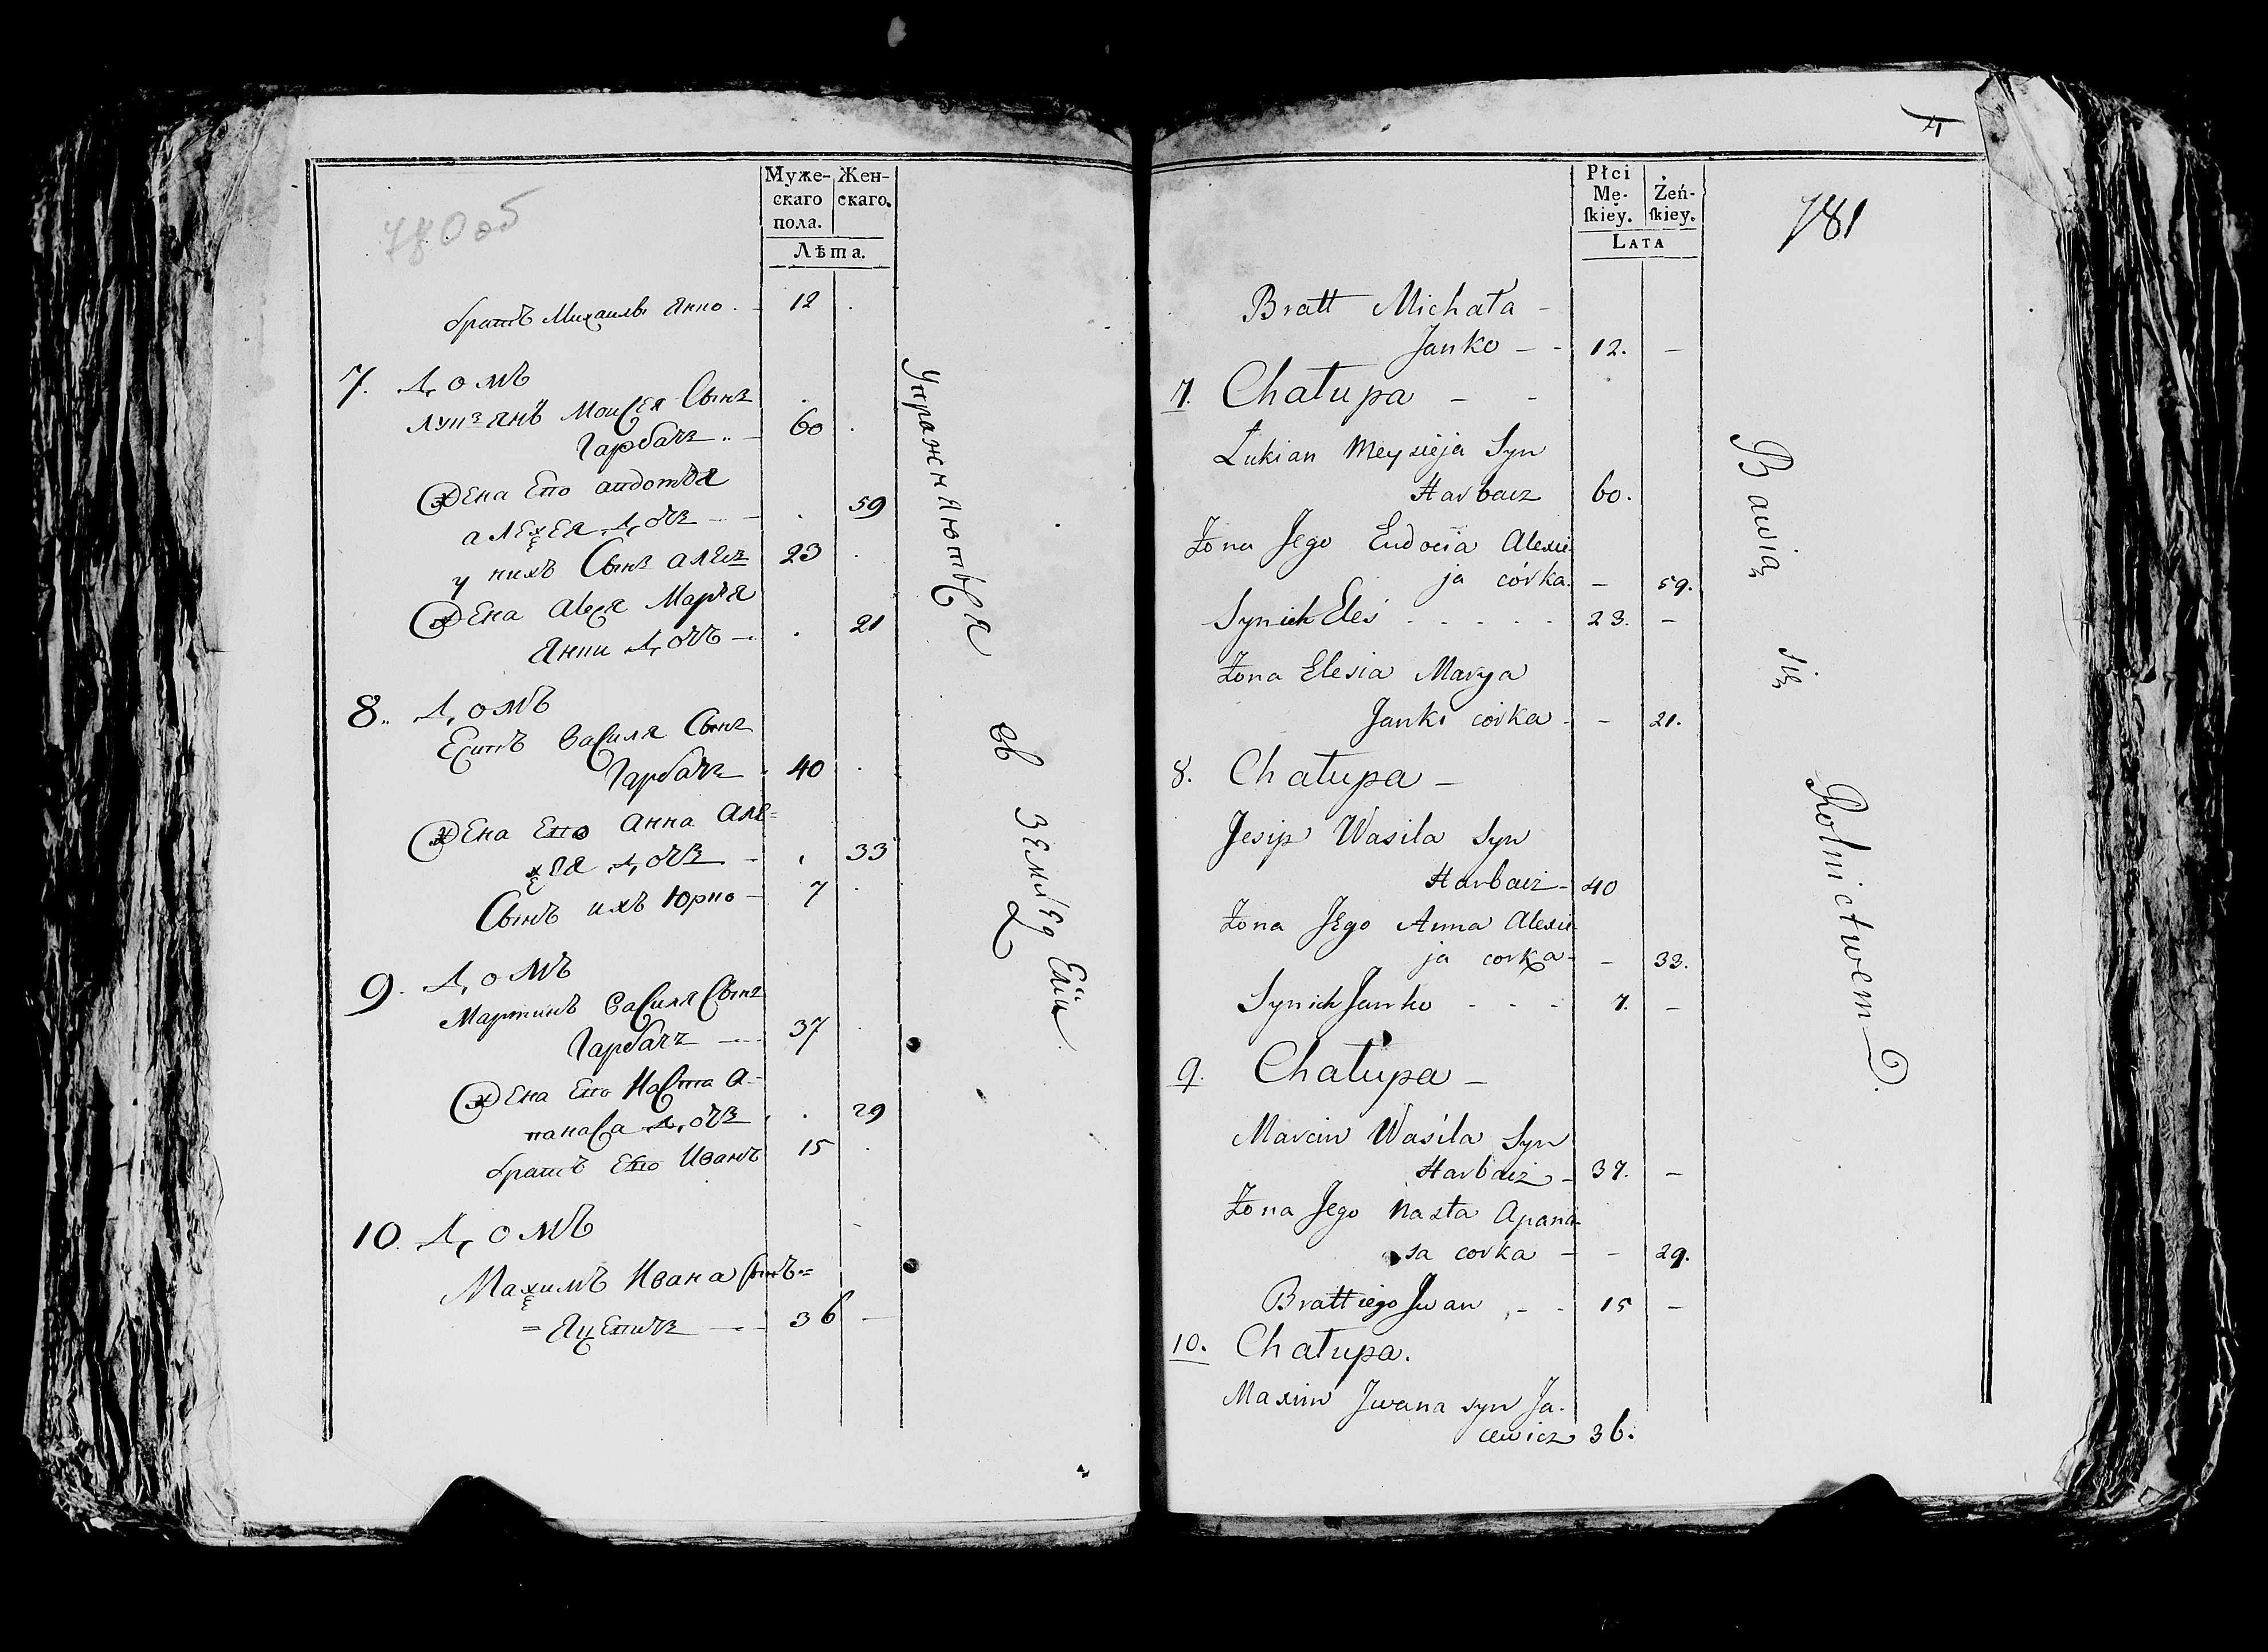 780 об
Муже-
скаго
пола.
Жен-
скаго.
Лѣта.
братъ Михаилы Янко . 12 .
7. Домъ
Лукьянъ Моисея Сынъ
Гарбачъ 60 .
Жена Его Авдотья
Алексея Дочь . 59
у нихъ Сынъ Алесь 23 .
Жена Алеся Марья
Янки Дочь . 21
8. Домъ
Есипъ Василя Сынъ
Гарбачъ 40 .
Жена Его Анна Але=
ксея Дочь . 33
Сынъ ихъ Юрко 7 .
9. Домъ
Мартинъ Василя Сынъ
Гарбачъ 37 .
Жена Его Наста А-
панаса Дочь . 29
братъ Его Иванъ 15 .
10. Домъ
Максимъ Ивана Сынъ =
= Яцевичъ 36 —
Упражняются въ земледелiи
4
781
Płci
Mę-
ſkiey.
Żeń-
ſkiey.
LATA
Bratt Michała -
Janko - - 12. -
7. Chałupa - -
Łukian Meysieja Syn
Harbacz 60.
Żona Jego Eudocia Alexie
ja córka. - 59.
Syn ich Eleś - - - - - 23. -
Żona Elesia Marya
Janki córka - - 21.
8. Chałupa -
Jesip Wasila Syn
Harbacz - 40
Żona Jego Anna Alexie-
ja corka - - 33.
Syn ich Janko - - - 7. -
9. Chałupa -
Marcin Wasila Syn
Harbacz - 37. -
Żona Jego Nasta Apana-
sa corka - - 29.
Bratt iego Jwan - - 15 -
10. Chałupa.
Maxim Jwana syn Ja-
cewicz 36.
Bawią się Rolnictwem